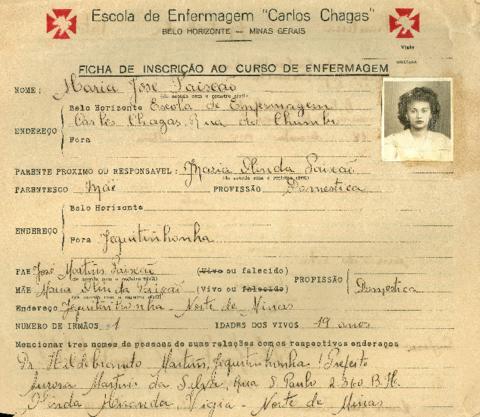 Escola de Enfermagem "Carlos Chagas"
BELO HORIZONTE — MINAS GERAIS
Visto
FICHA DE INSCRIÇÃO AO CURSO DE ENFERMAGEM
NOME: Maria José Paixão
(de acordo com o registro civil)
ENDEREÇO Belo Horizonte Escola de Enfermagem
Carlos Chagas, Rua do Chumbo
Fora
PARENTE PROXIMO OU RESPONSAVEL: Maria Olinda Paixão
(de acordo com o registro civil)
PARENTESCO Mãe PROFISSÃO Domestica
ENDEREÇO Belo Horizonte
Fora Jequitinhonha
PAE José Martins Paixão (Vivo ou falecido)
(de acordo com o registro civil)
PROFISSÃO
MÃE Maria Olinda Paixão (Vivo ou falecido) Domestica
(de acordo com o registro civil)
Endereço Jequitinhonha - Norte de Minas
NUMERO DE IRMÃOS 1 IDADES DOS VIVOS 19 anos
Mencionar tres nomes de pessoas de suas relações com os respectivos endereços
Dr. Hildebrando Martins, Jequitinhonha! Prefeito
Aurora Martins da Silva, Rua S. Paulo 2.360 B.H.
Olinda Miranda, Vigia - Norte de Minas